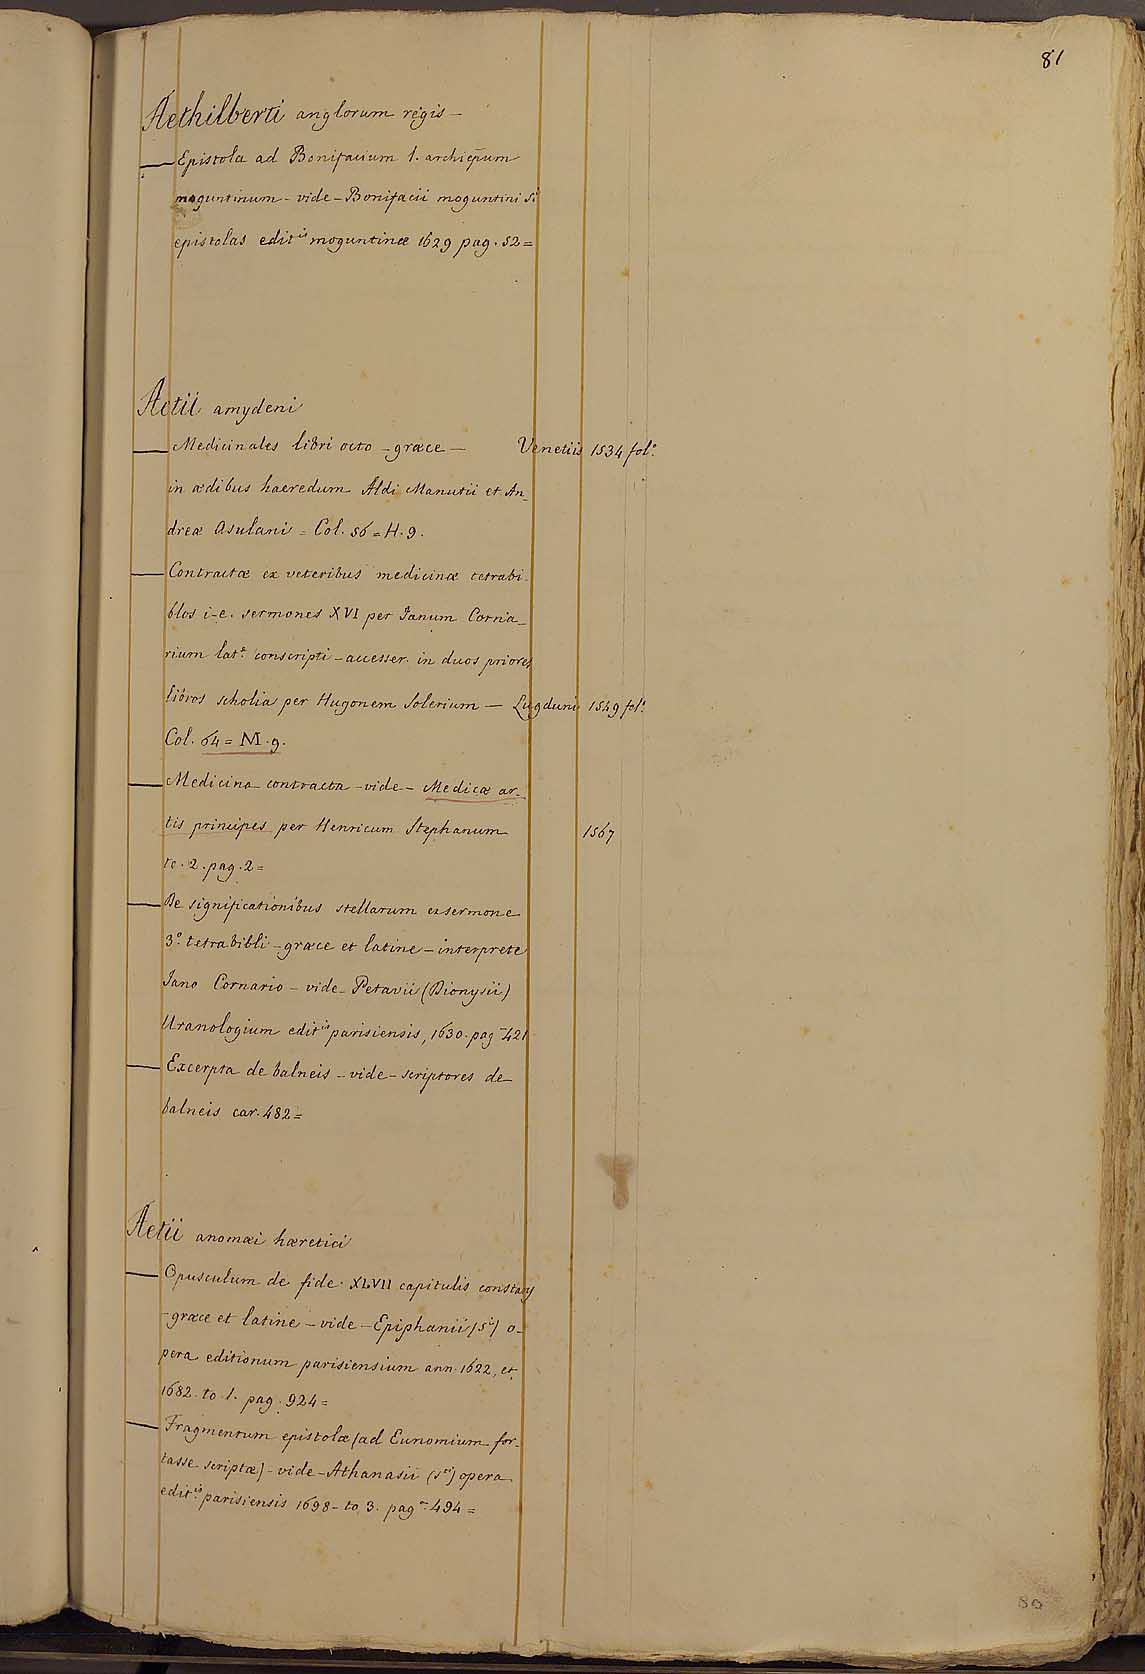 81
Aethilberti anglorum regis –
— Epistola ad Bonifacium 1. archiep̄um
moguntinum – vide – Bonifacii moguntini Sⁱ
epistolas editⁱˢ moguntinæ 1629 pag. 52 =
Aetii amydeni
— Medicinales libri octo – græce — Venetiis 1534 folº.
in ædibus haeredum Aldi Manutii et An-
dreæ Asulani = Col. 56 = H. 9.
— Contractæ ex veteribus medicinæ tetrabi-
blos i-e. sermones XVI per Janum Corna-
rium latᵉ conscripti – accesser. in duos priores
libros scholia per Hugonem Solerium — Lugduni 1549 folº
Col. 64 = M. 9.
— Medicina contracta – vide – Medicæ ar-
tis principes per Henricum Stephanum 1567
to. 2. pag. 2 =
— De significationibus stellarum ex sermone
3º. tetrabibli – græce et latine – interprete
Jano Cornario – vide – Petavii (Dionysii)
Uranologium editⁱˢ parisiensis, 1630. pag. 421
— Excerpta de balneis – vide – scriptores de
balneis car. 482 =
Aetii anomæi hæretici
— Opusculum de fide. XLVII capitulis constans
– græce et latine – vide – Epiphanii (Sⁱⁱ) o-
pera editionum parisiensium ann. 1622, et
1682. to. 1. pag. 924 =
— Fragmentum epistolæ (ad Eunomium for-
tasse scriptæ) – vide – Athanasii (Sᵗⁱ) opera
editⁱˢ parisiensis 1698 – to. 3. pag. 494 =